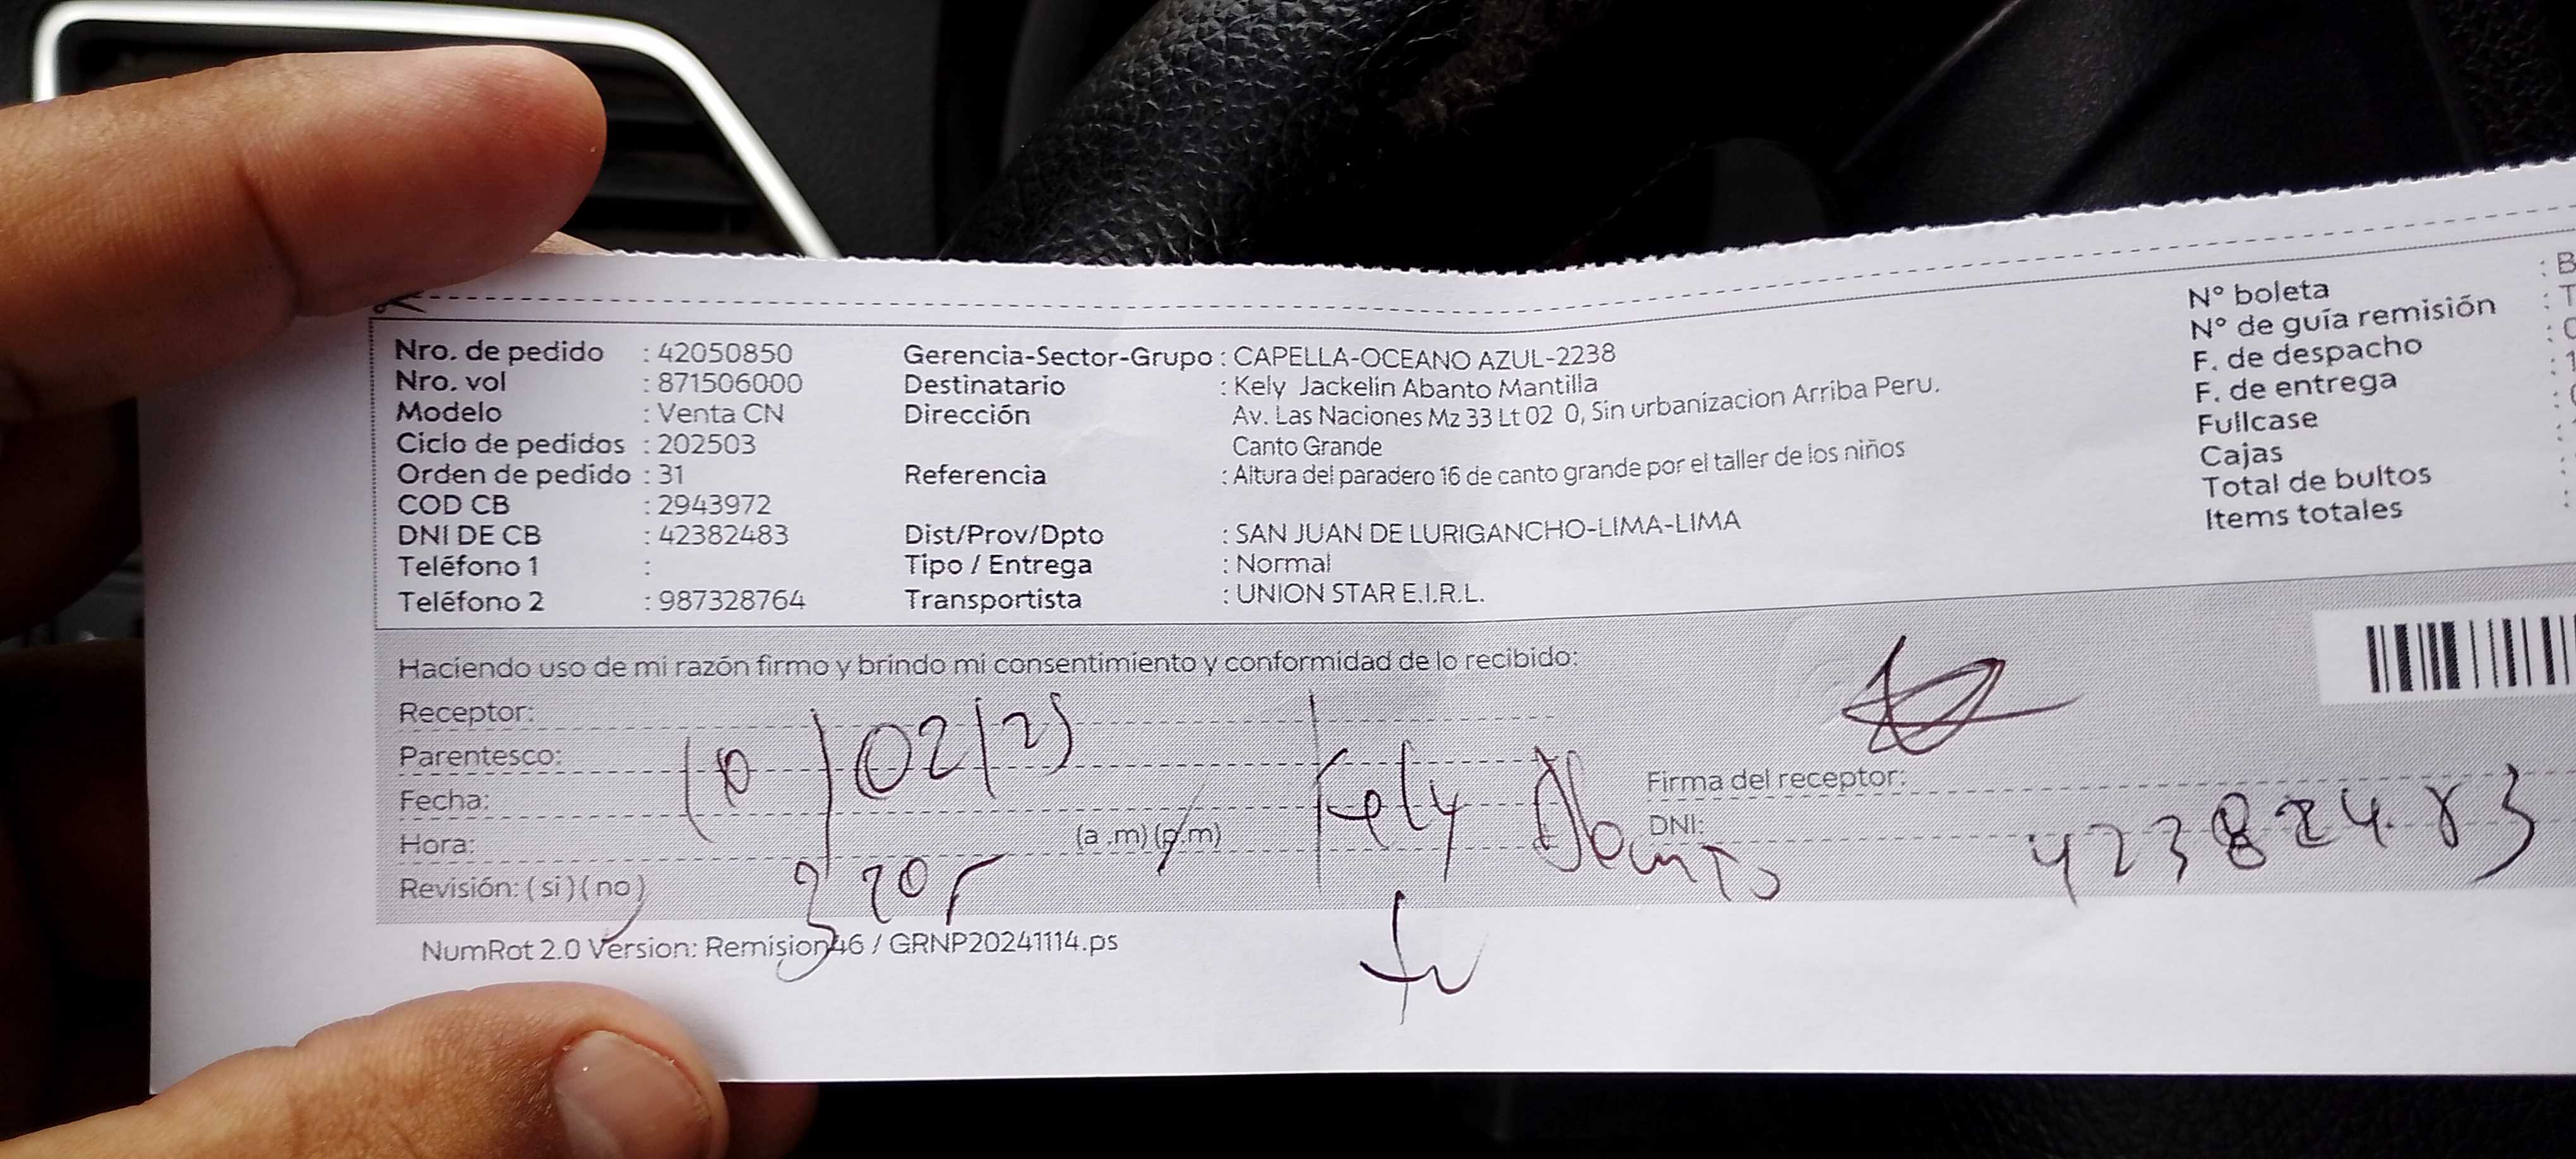 Nro. de pedido : 42050850
Nro. vol : 871506000
Modelo : Venta CN
Ciclo de pedidos : 202503
Orden de pedido : 31
COD CB : 2943972
DNI DE CB : 42382483
Teléfono 1 :
Teléfono 2 : 987328764
Gerencia-Sector-Grupo : CAPELLA-OCEANO AZUL-2238
Destinatario : Kely Jackelin Abanto Mantilla
Dirección Av. Las Naciones Mz 33 Lt 02 0, Sin urbanizacion Arriba Peru.
Canto Grande
Referencia : Altura del paradero 16 de canto grande por el taller de los niños
Dist/Prov/Dpto : SAN JUAN DE LURIGANCHO-LIMA-LIMA
Tipo / Entrega : Normal
Transportista : UNION STAR E.I.R.L.
N° boleta : B
N° de guía remisión : T
F. de despacho
F. de entrega
Fullcase
Cajas
Total de bultos
Items totales
Haciendo uso de mi razón firmo y brindo mi consentimiento y conformidad de lo recibido:
Receptor:
Parentesco:
Fecha: 10/02/25
Hora: (a .m) (p.m)
Revisión: ( si ) ( no )
Kely Abanto
Firma del receptor:
DNI: 42382483
NumRot 2.0 Version: Remision46 / GRNP20241114.ps